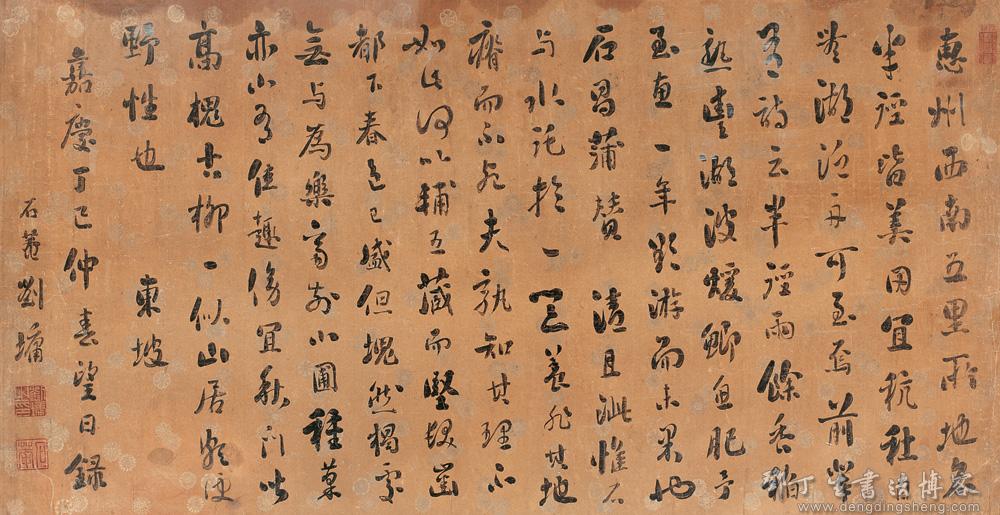 惠州西南五里所地名
半逕皆美田宜秔秫
湖泛舟可至焉前輩
有詩云半逕雨餘香稻
熟豐湖波煖鯽魚肥予
至惠一年欲游而未果也
石菖蒲贊 清且泚惟石
与水託於一器養非其地
瘠而不死夫孰知其理不
如此何以輔五藏而堅髮齒
都下春色已盛但塊然獨處
無与為樂齋前小圃種菜
亦小有佳趣傍宜秋門皆
高槐古柳一似山居頗便
野性也 東坡
嘉慶丁巳仲春望日錄
石菴劉墉
邓丁生書法博客
www.dengdingsheng.com